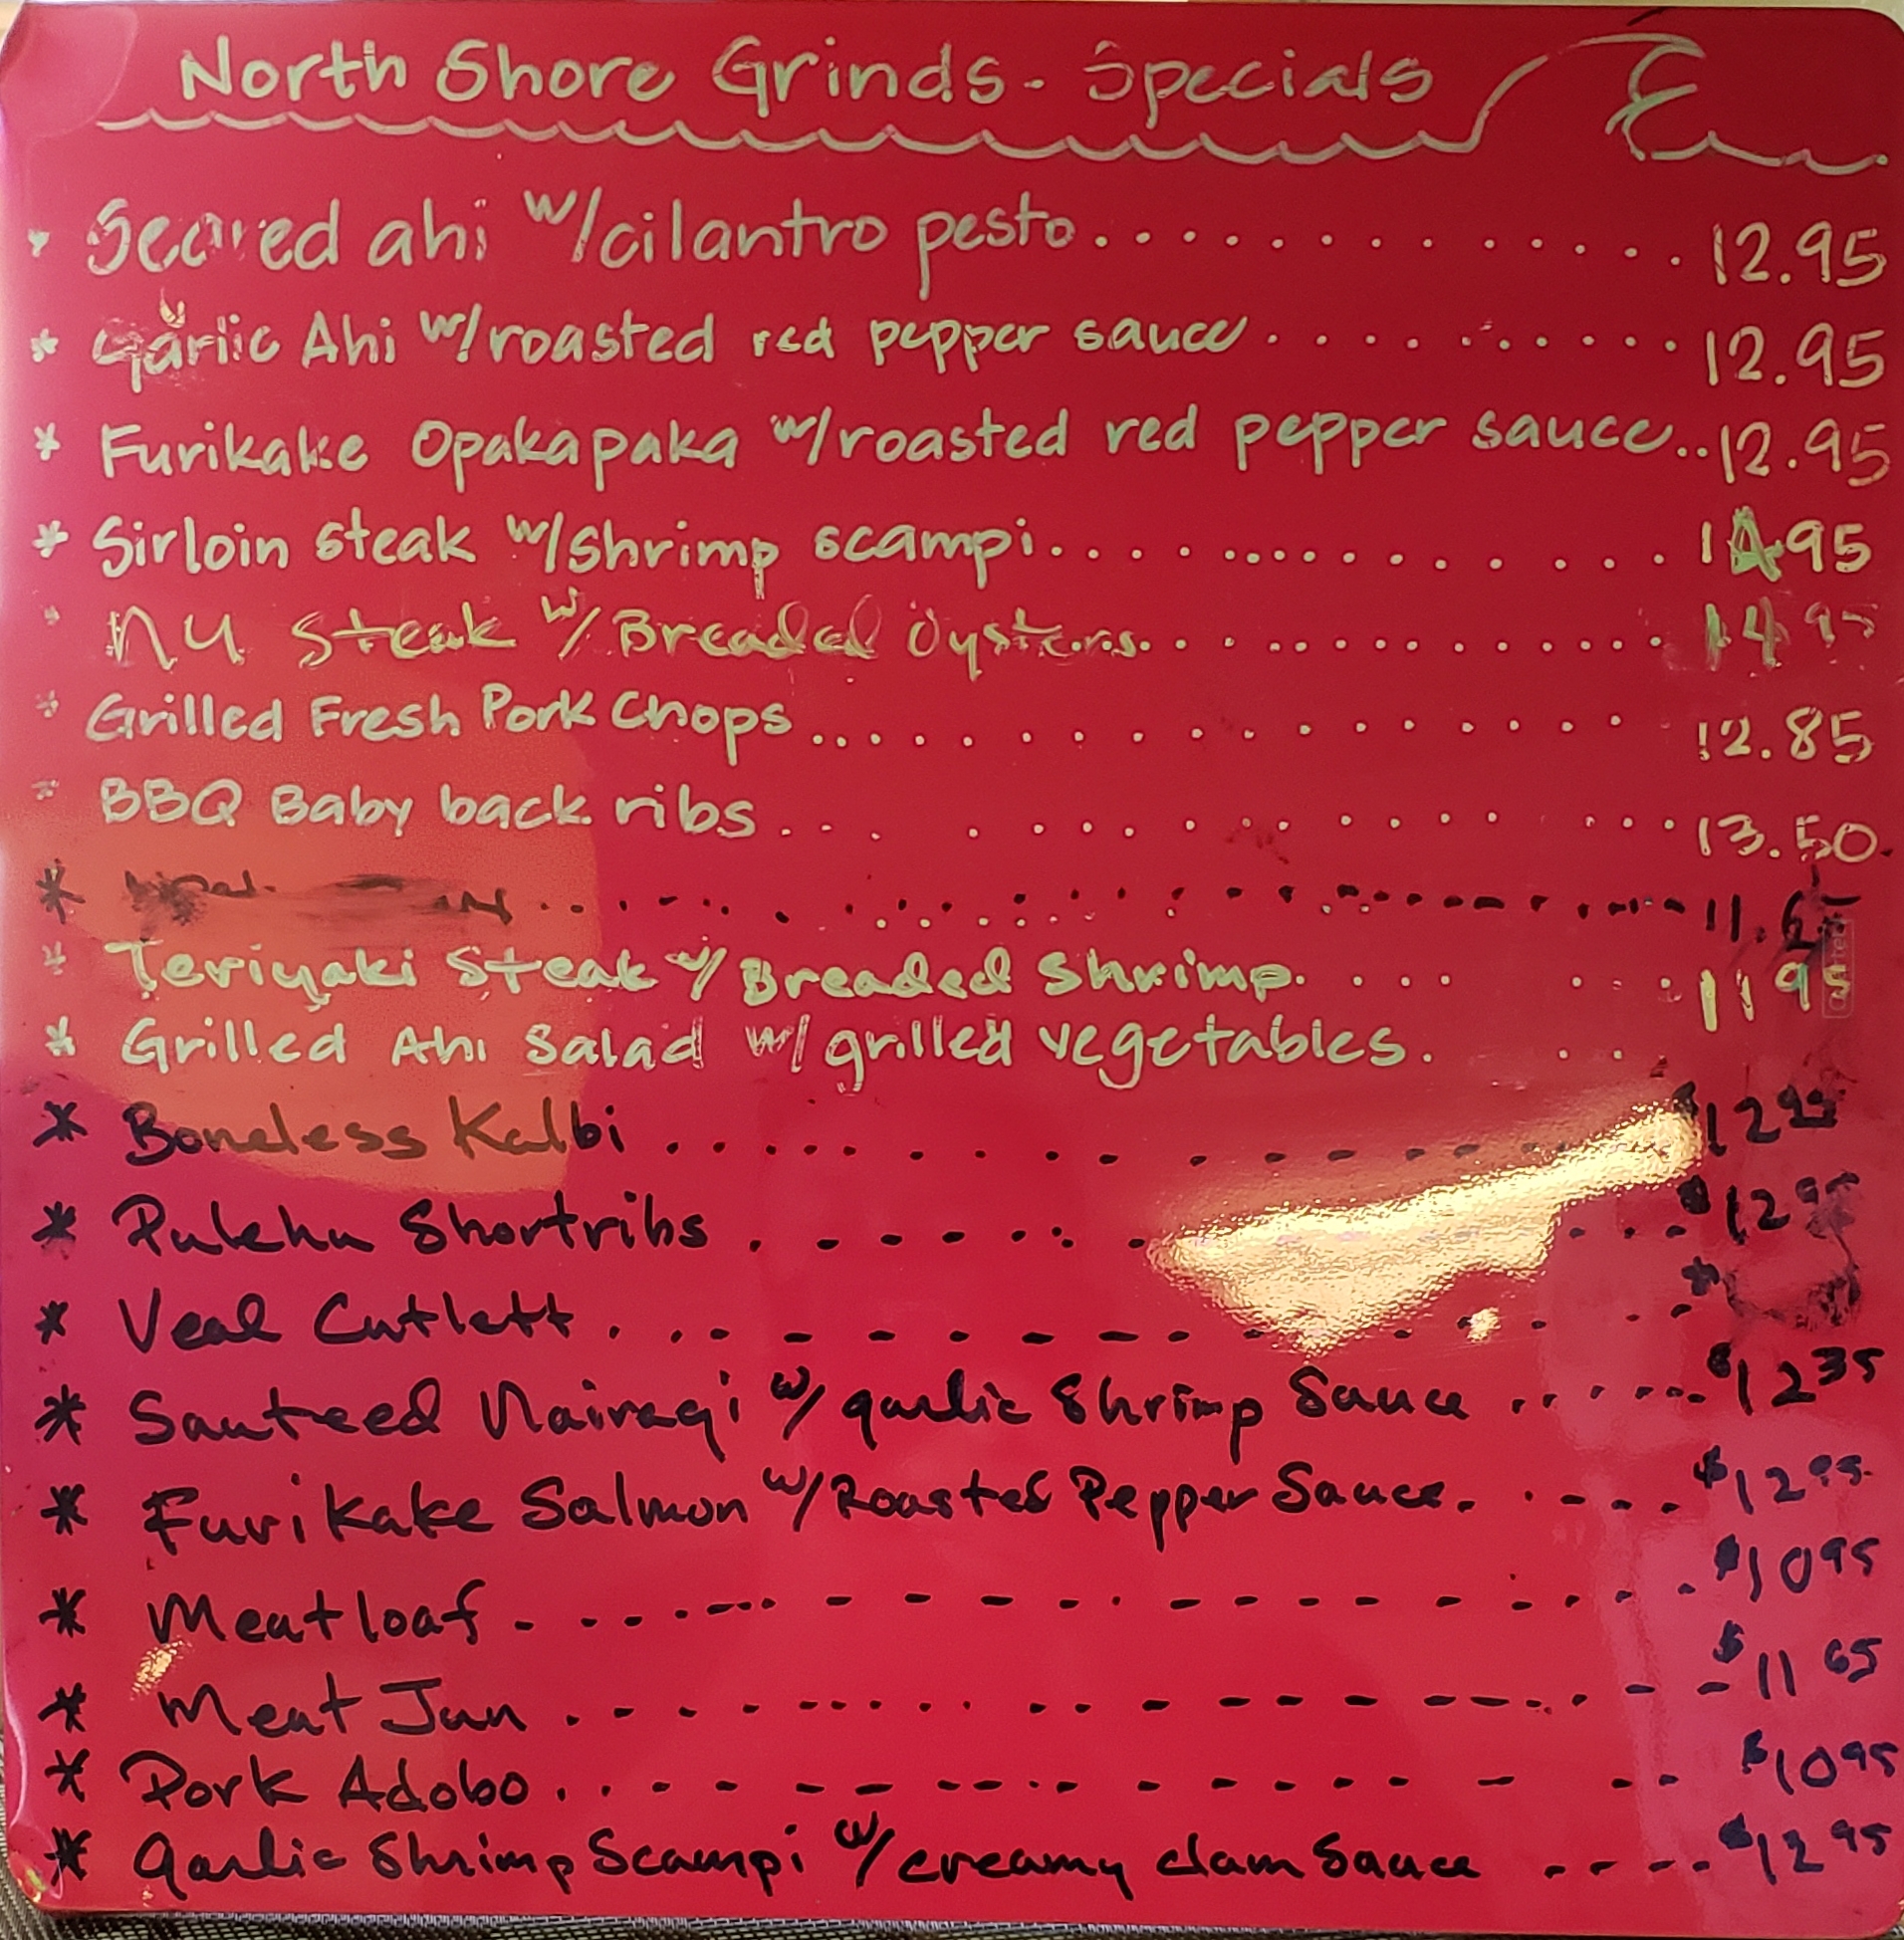 North Shore Grinds - Specials
* Seared ahi w/cilantro pesto.............. 12.95
* Garlic Ahi w/roasted red pepper sauce........... 12.95
* Furikake Opakapaka w/roasted red pepper sauce.. 12.95
* Sirloin steak w/shrimp scampi............... 14.95
* NY Steak w/ Breaded Oysters.............. 14.95
* Grilled Fresh Pork Chops............... 12.85
* BBQ Baby back ribs............... 13.50
* ............... 11.65
* Teriyaki Steak w/ Breaded Shrimp....... 11 95
* Grilled Ahi Salad w/ grilled vegetables...
* Boneless Kalbi............... $12 95
* Pulehu Shortribs............ $12 95
* Veal Cutlett............... $
* Sauteed Nairagi w/ garlic Shrimp Sauce ...... $12 35
* Furikake Salmon w/ Roasted Pepper Sauce...... $12 95
* Meatloaf............... $10 95
* Meat Jun............... $11 65
* Pork Adobo............... $10 95
* Garlic Shrimp Scampi w/ creamy clam Sauce .... $12 95